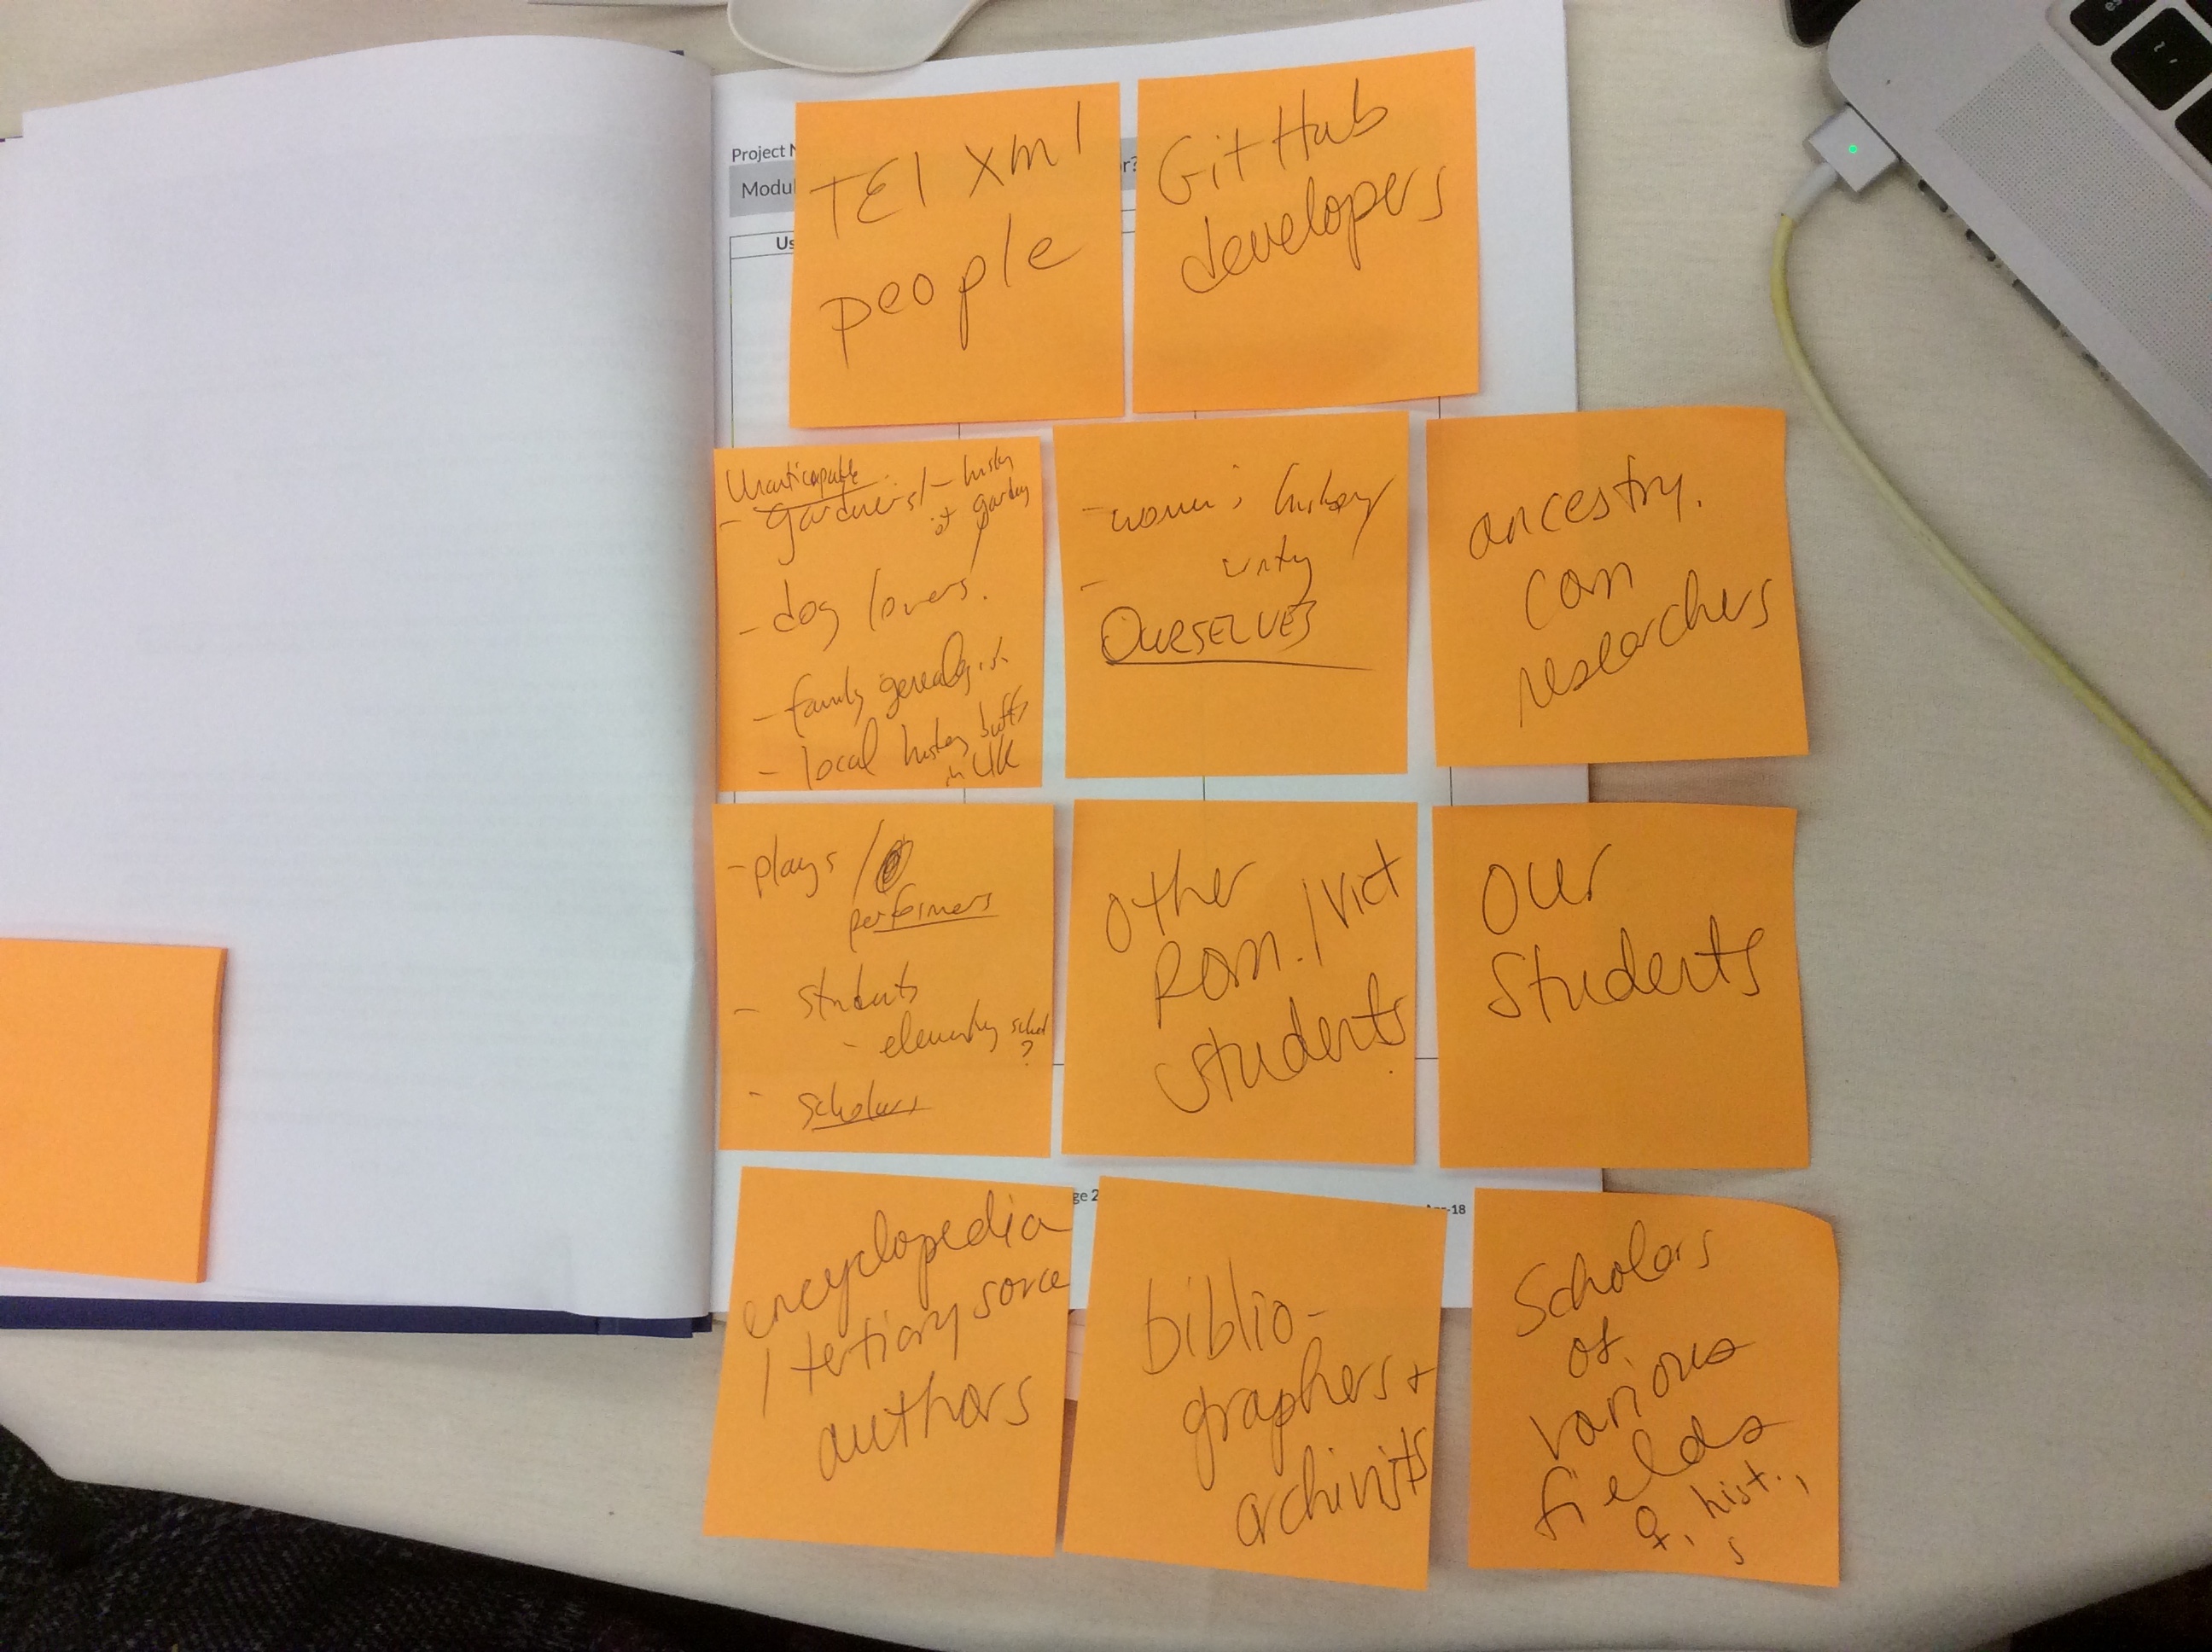 Project N
Modul
or?
Us
TEI xml
people
GitHub
developers
- gardners/ - history
of garden
- dog lovers!
- family genealogist
- local history buffs
in UK
- women's history
-
OURSELVES
ancestry.
com
researchers
- plays /
performers
- students
- elementary school
?
- scholars
other
Rom. / Vict
students
our
students
encyclopedia
/ tertiary sorce
authors
biblio-
graphers +
archivists
Scholars
of
various
fields
♀, hist.,
s
ge 2
-18
esc
~
`